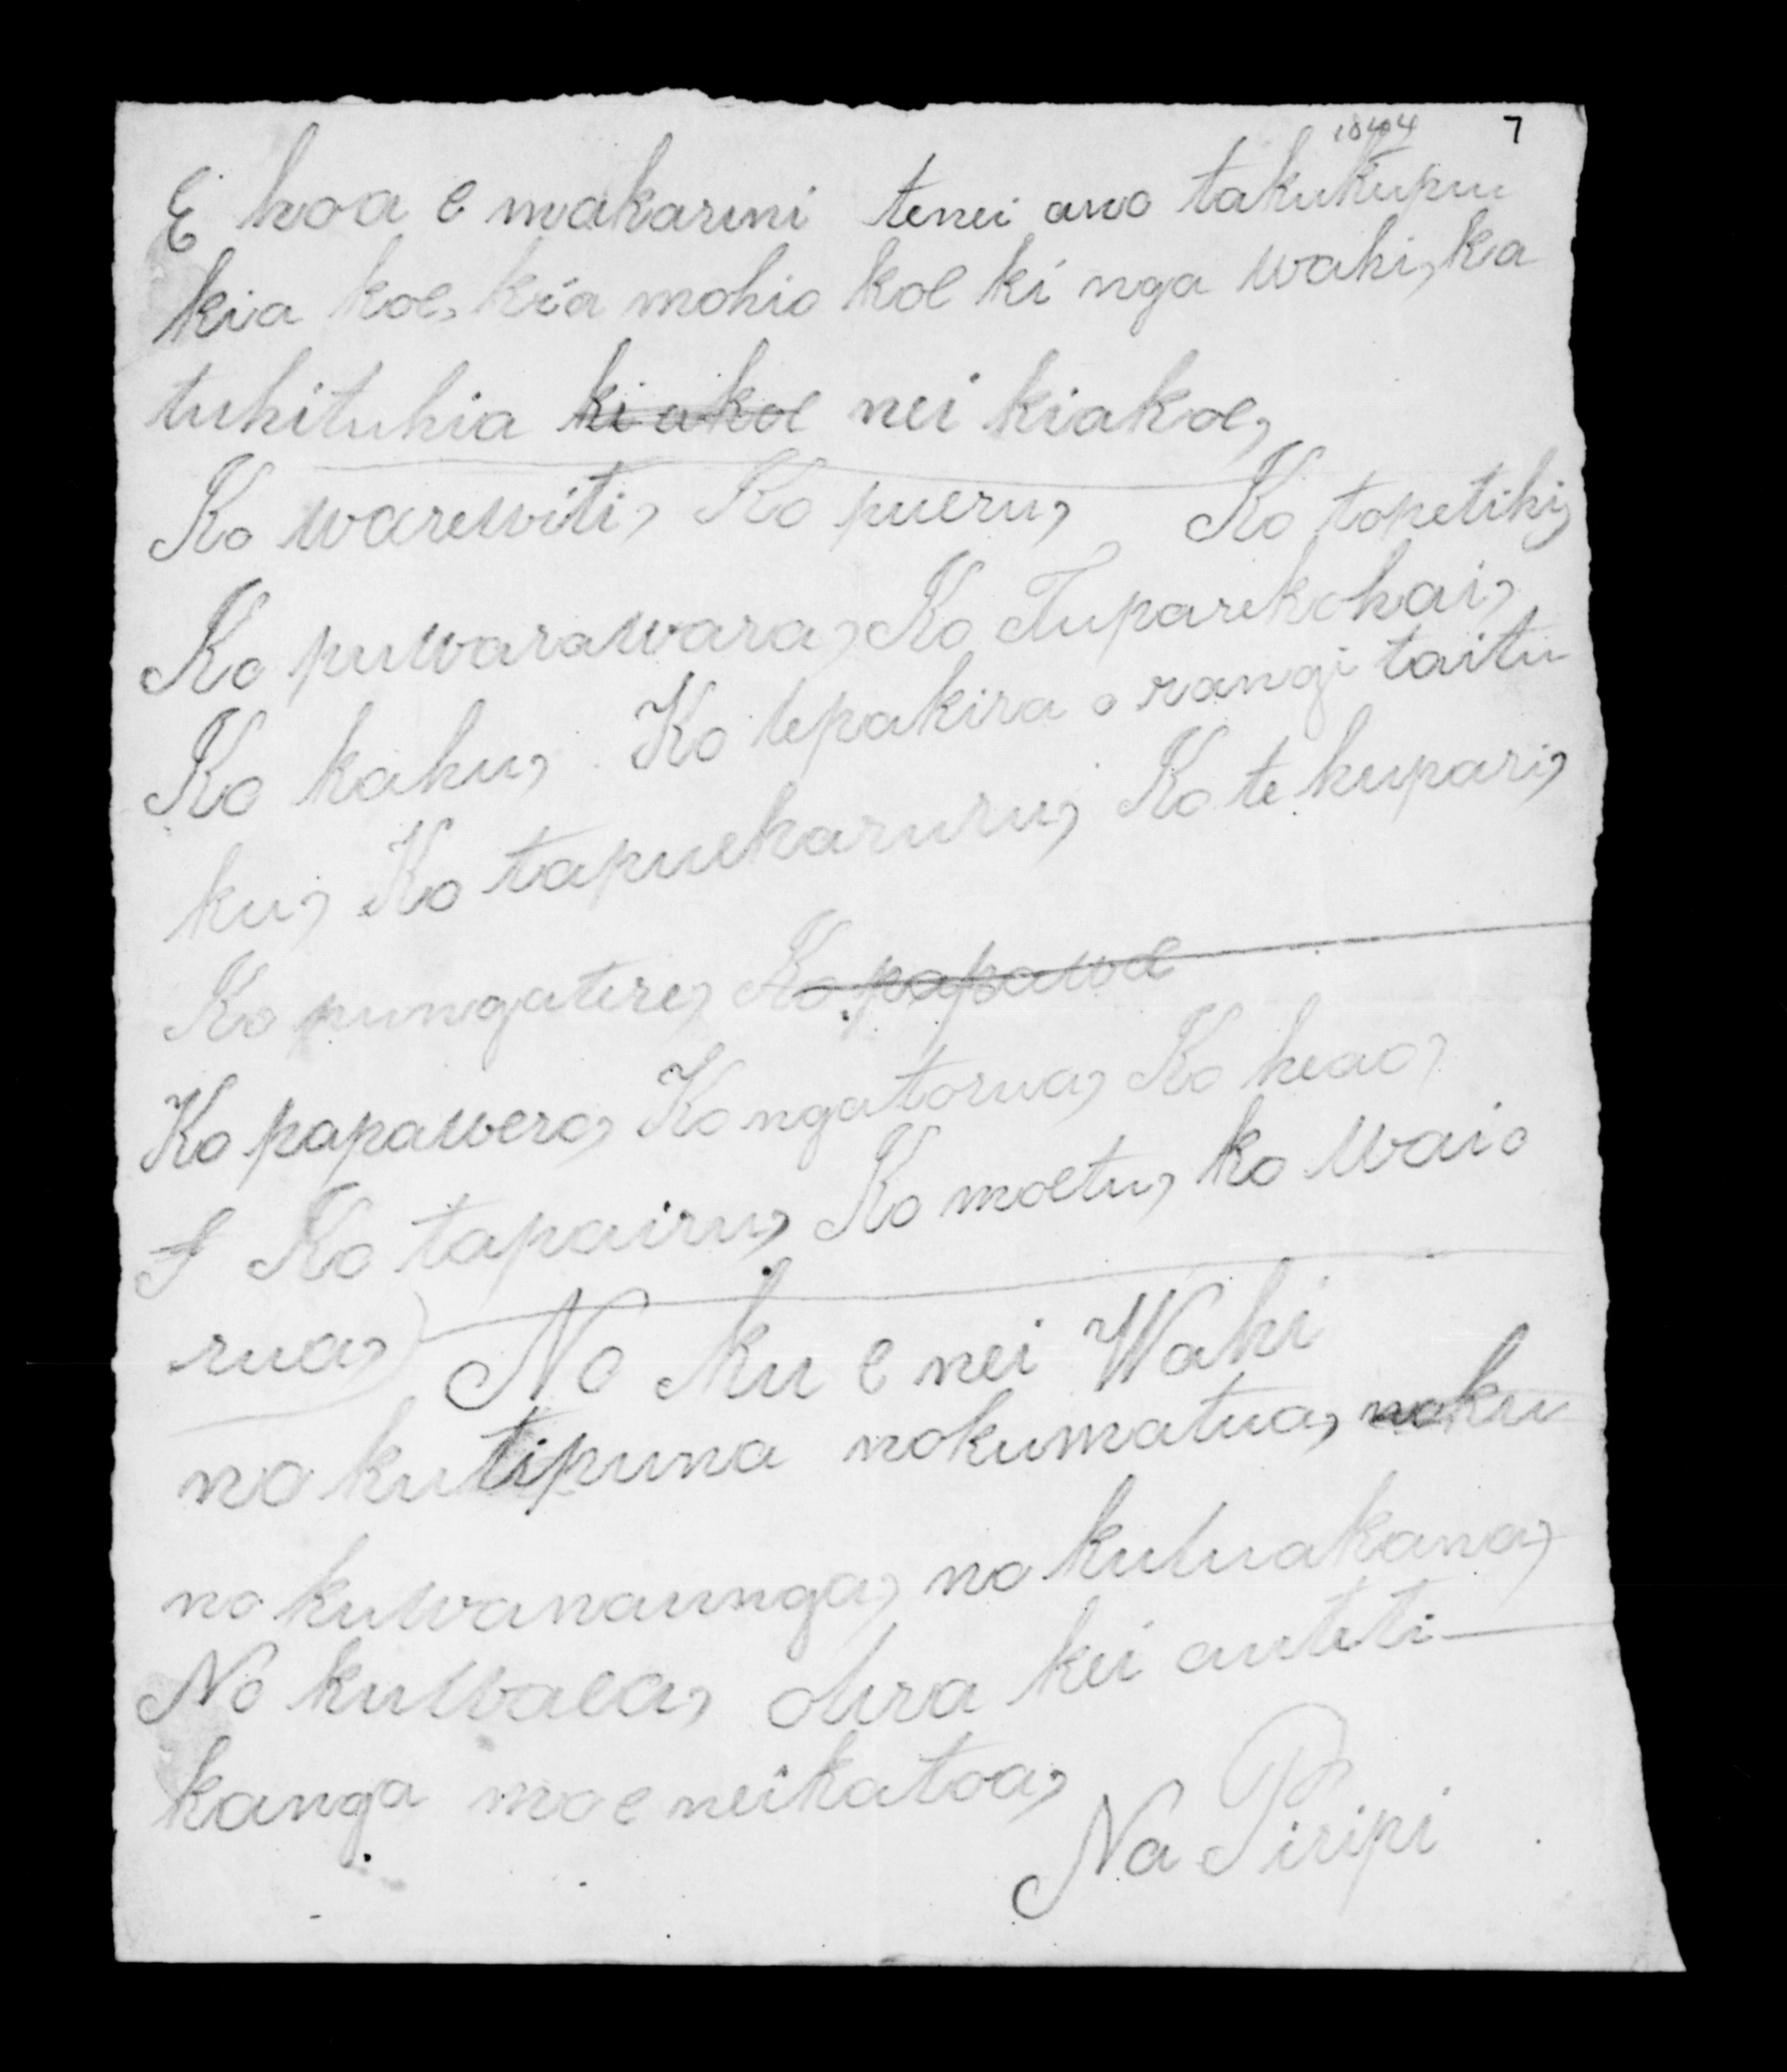 1844 7
E hoa e makarini tenei ano takukupu
kia koe, kia mohio koe ki nga wahi, ka
tuhituhia kiakoe nei kiakoe,
Ko warewiti, Ko pueru, Ko topetihi,
Ko puwarawara, Ko Tuparekohai,
Ko kahu, Ko tepakira o rangi taitu
ku, Ko tapuekaruru, Ko te kupari,
Ko pungatere, Ko papawe
Ko papawero, Ko ngatorua, Ko heao,
Ko tapairu, Ko moetu, ko Waio
rua,
No ku e nei Wahi
no kutipuna nokumatua, noku
no kuwanaunga, no kutuakana,
No kuwaea, ohra kei auteti
kanga mo e neikatoa,
Na Piripi